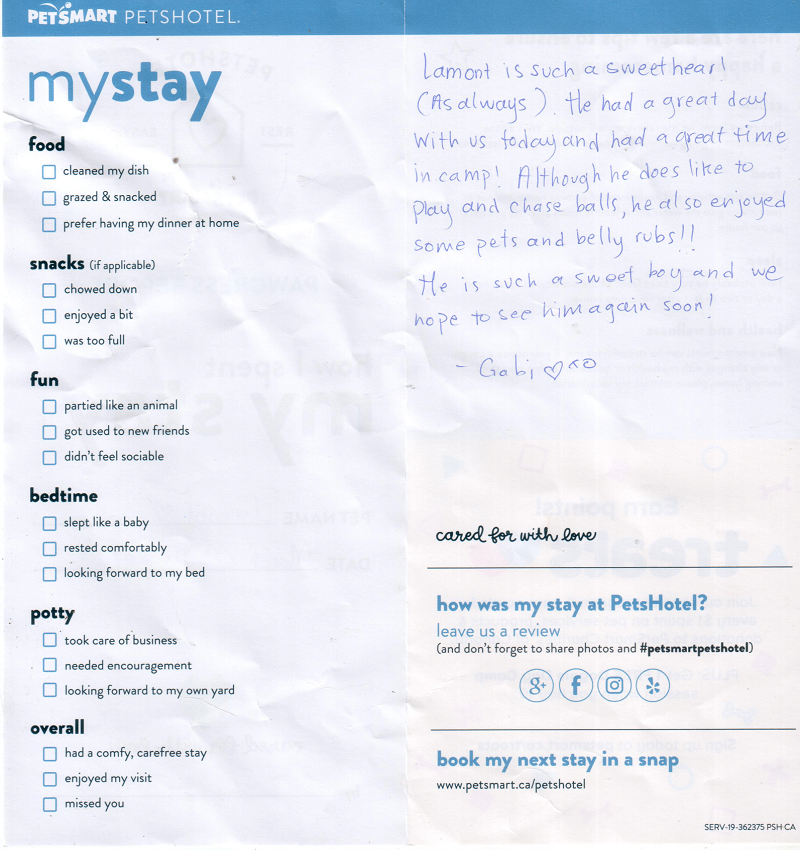 PETSMART PETSHOTEL.
mystay
food
cleaned my dish
grazed & snacked
prefer having my dinner at home
snacks (if applicable)
chowed down
enjoyed a bit
was too full
fun
partied like an animal
got used to new friends
didn't feel sociable
bedtime
slept like a baby
rested comfortably
looking forward to my bed
potty
took care of business
needed encouragement
looking forward to my own yard
overall
had a comfy, carefree stay
enjoyed my visit
missed you
Lamont is such a sweetheart!
(As always). He had a great day
with us today and had a great time
in camp! Although he does like to
play and chase balls, he also enjoyed
some pets and belly rubs!!
He is such a sweet boy and we
hope to see him again soon!
- Gabi ♡xo
cared for with love
how was my stay at PetsHotel?
leave us a review
(and don't forget to share photos and #petsmartpetshotel)
g+ f
book my next stay in a snap
www.petsmart.ca/petshotel
SERV-19-362375 PSH CA